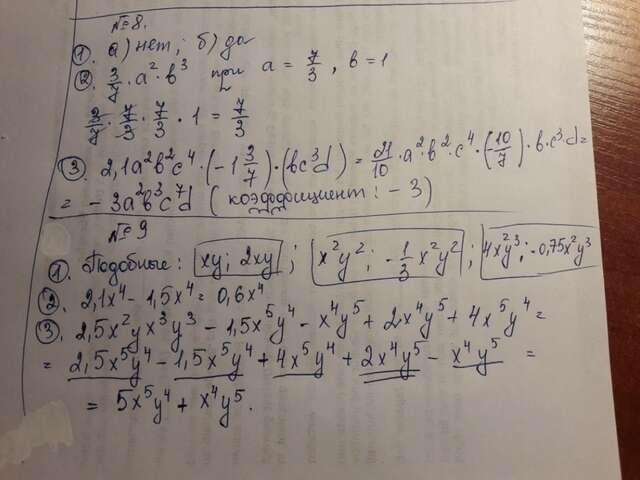 №8.
①. а) нет; б) да
②. 3/7 · a² · b³ при a = 7/3, b = 1
3/7 · 7/3 · 7/3 · 1 = 7/3
③. 2,1a²b²c⁴ · (-1 3/7) · (bc³d) = 21/10 · a² · b² · c⁴ · (10/7) · b · c³ · d =
= - 3a²b³c⁷d (коэффициент: - 3)
№9
①. Подобные: xy; 2xy; x²y²; -1/3 x²y²; 4x²y³; -0,75x²y³
②. 2,1x⁴ - 1,5x⁴ = 0,6x⁴
③. 2,5x²yx³y³ - 1,5x⁵y⁴ - x⁴y⁵ + 2x⁴y⁵ + 4x⁵y⁴ =
= 2,5x⁵y⁴ - 1,5x⁵y⁴ + 4x⁵y⁴ + 2x⁴y⁵ - x⁴y⁵ =
= 5x⁵y⁴ + x⁴y⁵.